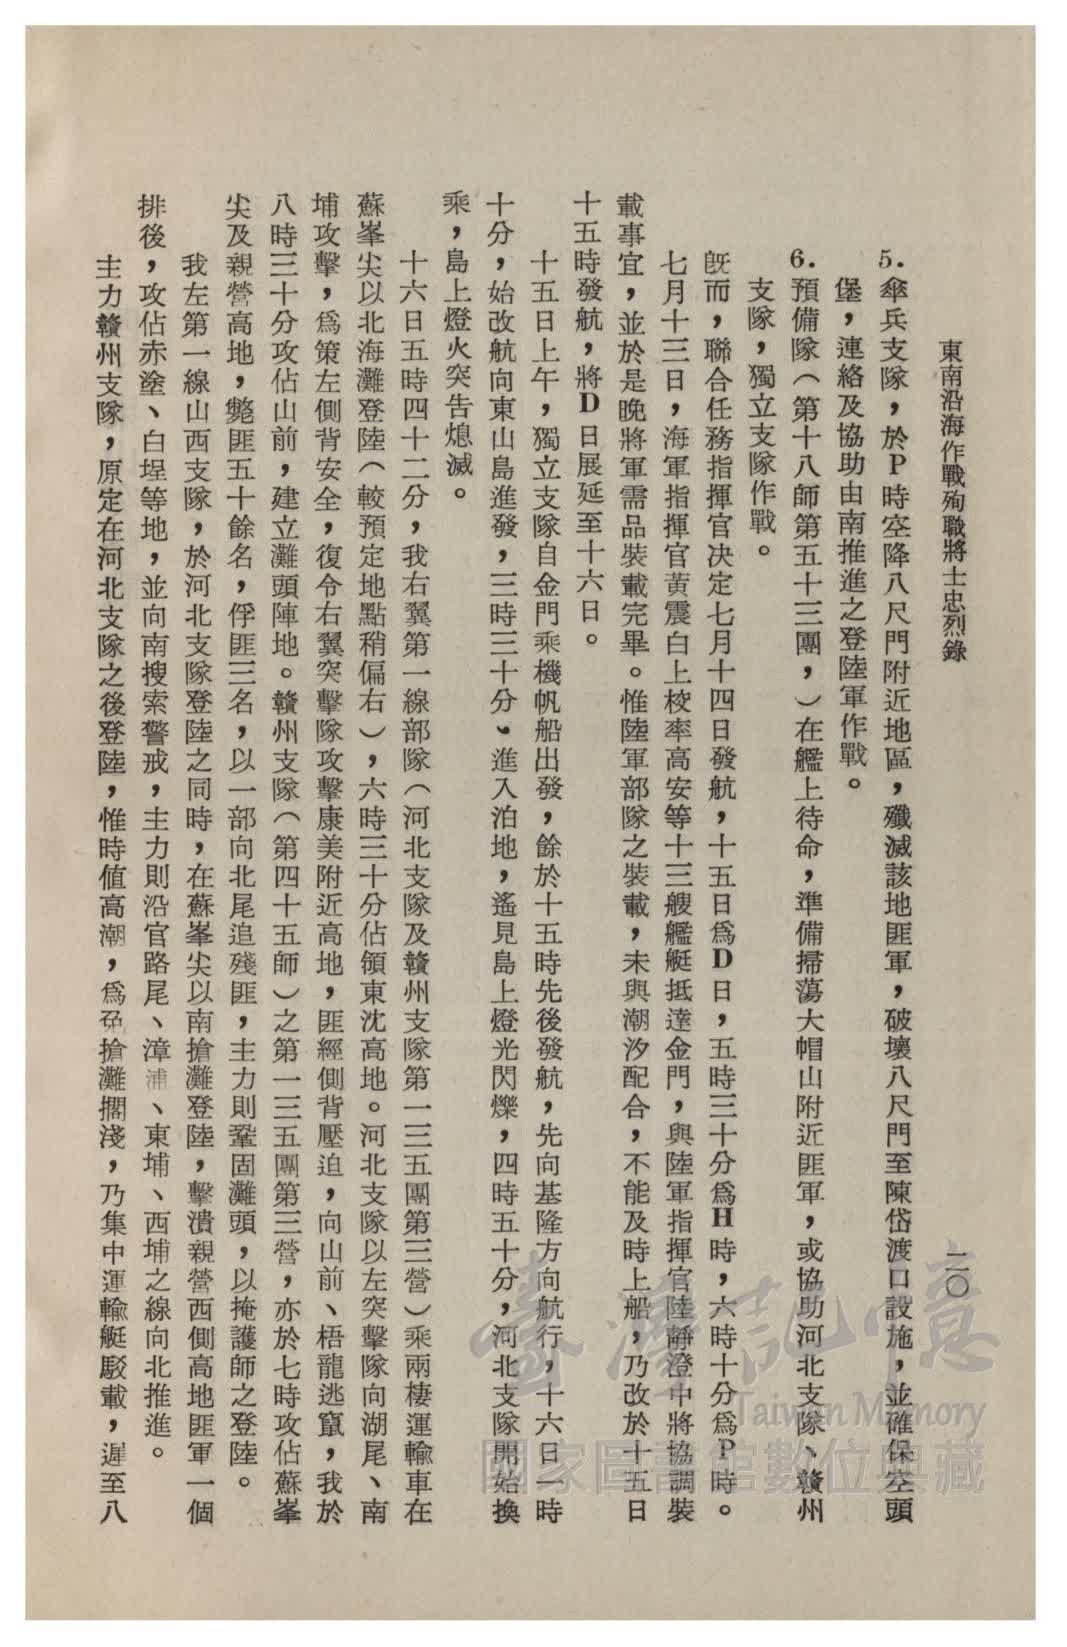 東南沿海作戰殉職將士忠烈錄
二〇
5.傘兵支隊，於P時空降八尺門附近地區，殲滅該地匪軍，破壞八尺門至陳岱渡口設施，並確保空頭
堡，連絡及協助由南推進之登陸軍作戰。
6.預備隊（第十八師第五十三團，）在艦上待命，準備掃蕩大帽山附近匪軍，或協助河北支隊、贛州
支隊，獨立支隊作戰。
既而，聯合任務指揮官決定七月十四日發航，十五日爲D日，五時三十分爲H時，六時十分爲P時。
七月十三日，海軍指揮官黃震白上校率高安等十三艘艦艇抵達金門，與陸軍指揮官陸靜澄中將協調裝
載事宜，並於是晚將軍需品裝載完畢。惟陸軍部隊之裝載，未與潮汐配合，不能及時上船，乃改於十五日
十五時發航，將D日展延至十六日。
十五日上午，獨立支隊自金門乘機帆船出發，餘於十五時先後發航，先向基隆方向航行，十六日一時
十分，始改航向東山島進發，三時三十分，進入泊地，遙見島上燈光閃爍，四時五十分，河北支隊開始換
乘，島上燈火突告熄滅。
十六日五時四十二分，我右翼第一線部隊（河北支隊及贛州支隊第一三五團第三營）乘兩棲運輸車在
蘇峯尖以北海灘登陸（較預定地點稍偏右），六時三十分佔領東沈高地。河北支隊以左突擊隊向湖尾、南
埔攻擊，爲策左側背安全，復令右翼突擊隊攻擊康美附近高地，匪經側背壓迫，向山前、梧龍逃竄，我於
八時三十分攻佔山前，建立灘頭陣地。贛州支隊（第四十五師）之第一三五團第三營，亦於七時攻佔蘇峯
尖及親營高地，斃匪五十餘名，俘匪三名，以一部向北尾追殘匪，主力則鞏固灘頭，以掩護師之登陸。
我左第一線山西支隊，於河北支隊登陸之同時，在蘇峯尖以南搶灘登陸，擊潰親營西側高地匪軍一個
排後，攻佔赤塗、白埕等地，並向南搜索警戒，主力則沿官路尾、漳浦、東埔、西埔之線向北推進。
主力贛州支隊，原定在河北支隊之後登陸，惟時值高潮，爲免搶灘擱淺，乃集中運輸艇駁載，遲至八
臺灣記憶
Taiwan Memory
國家圖書館數位典藏